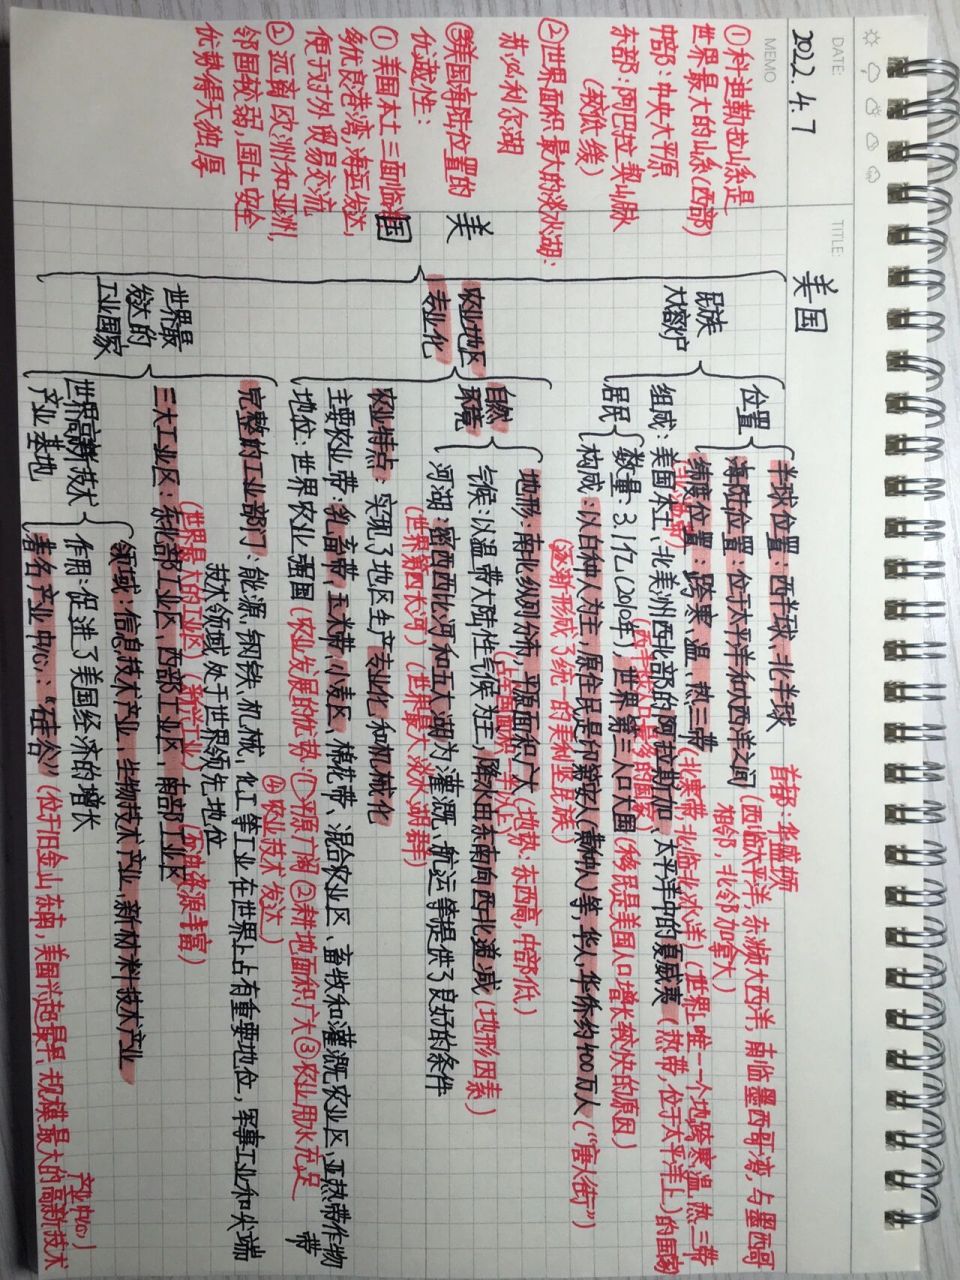 DATE:
2022.4.7
MEMO
TITLE:
美国
①科迪勒拉山系是
世界最大的山系(西部)
中部：中央大平原
东部：阿巴拉契山脉
(较低缓)
②世界面积最大的淡水湖：
苏必利尔湖
美国海陆位置的
优越性：
①美国本土三面临海
多优良港湾,海运发达,
便于对外贸易交流
②远离欧洲和亚洲,
邻国较弱,国土安全
优势得天独厚
美国
民族
大熔炉
位置
半球位置：西半球、北半球
首都：华盛顿
海陆位置：位于太平洋和大西洋之间
(西临太平洋,东濒大西洋,南临墨西哥湾,与墨西哥
相邻,北邻加拿大)
纬度位置：跨寒、温、热三带
(北寒带,北临北冰洋)(世界上唯一一个地跨寒、温、热三带
的国家
组成：美国本土、北美洲西北部的阿拉斯加、太平洋中的夏威夷
(热带,位于太平洋上)
居民
数量：3.1亿(2010年),世界第三人口大国
(移民是美国人口增长较快的原因)
构成：以白种人为主,原住民是印第安人(黄种人)等,华人、华侨约400万人("唐人街")
(逐渐形成了统一的美利坚民族)
农业地区
专业化
自然
环境
地形：南北纵列分布,平原面积广大
(地势：东西高,中部低)
气候：以温带大陆性气候为主,降水由东南向西北递减(地形因素)
河湖：密西西比河和五大湖为灌溉、航运等提供了良好的条件
(世界第四长河)(世界最大淡水湖群)
农业特点：实现了地区生产专业化和机械化
主要农业带：乳畜带、玉米带、小麦区、棉花带、混合农业区、畜牧和灌溉农业区、亚热带作物
带
地位：世界农业强国(农业发展的优势：①平原广阔②耕地面积广大③农业用水充足
④农业技术发达)
世界最
发达的
工业国家
完整的工业部门：能源、钢铁、机械、化工等工业在世界上占有重要地位,军事工业和尖端
技术领域处于世界领先地位
三大工业区：东北部工业区、西部工业区、南部工业区
(世界最大的工业区)(新兴工业)(石油资源丰富)
世界高新技术
产业基地
领域：信息技术产业、生物技术产业、新材料技术产业
作用：促进了美国经济的增长
著名产业中心："硅谷"(位于旧金山东南,美国兴起最早,规模最大的高新技术
产业中心)